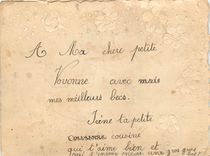 A Ma chere petite
Yvonne avec mais
mes meilleurs becs.
Irène ta petite
cousine
qui t'aime bien et